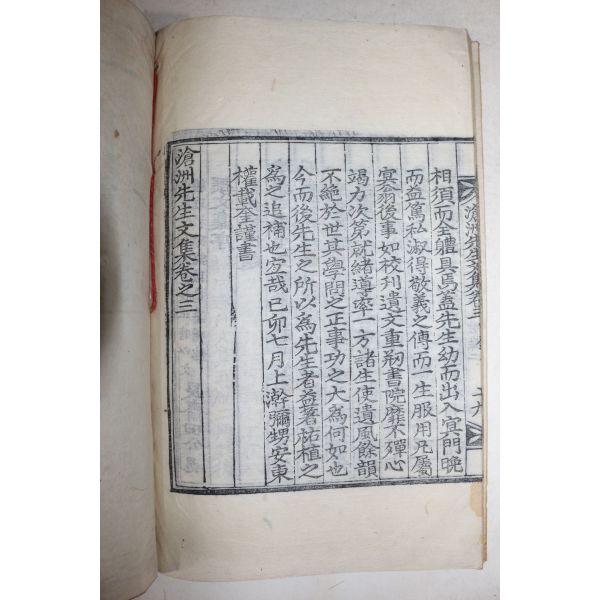 滄洲先生文集卷三
相須而全體具焉盖先生幼而出入冥門晩
而益篤私淑得敬義之傳而一生服用凡屬
冥翁後事如校刊遺文重刱書院靡不殫心
竭力次第就緖導率一方諸生使遺風餘韻
不絶於世其學問之正事功之大為何如也
今而後先生之所以為先生者益著祐植之
為之追補也宜哉己卯七月上澣彌甥安東
權載奎謹書
滄洲先生文集卷之三